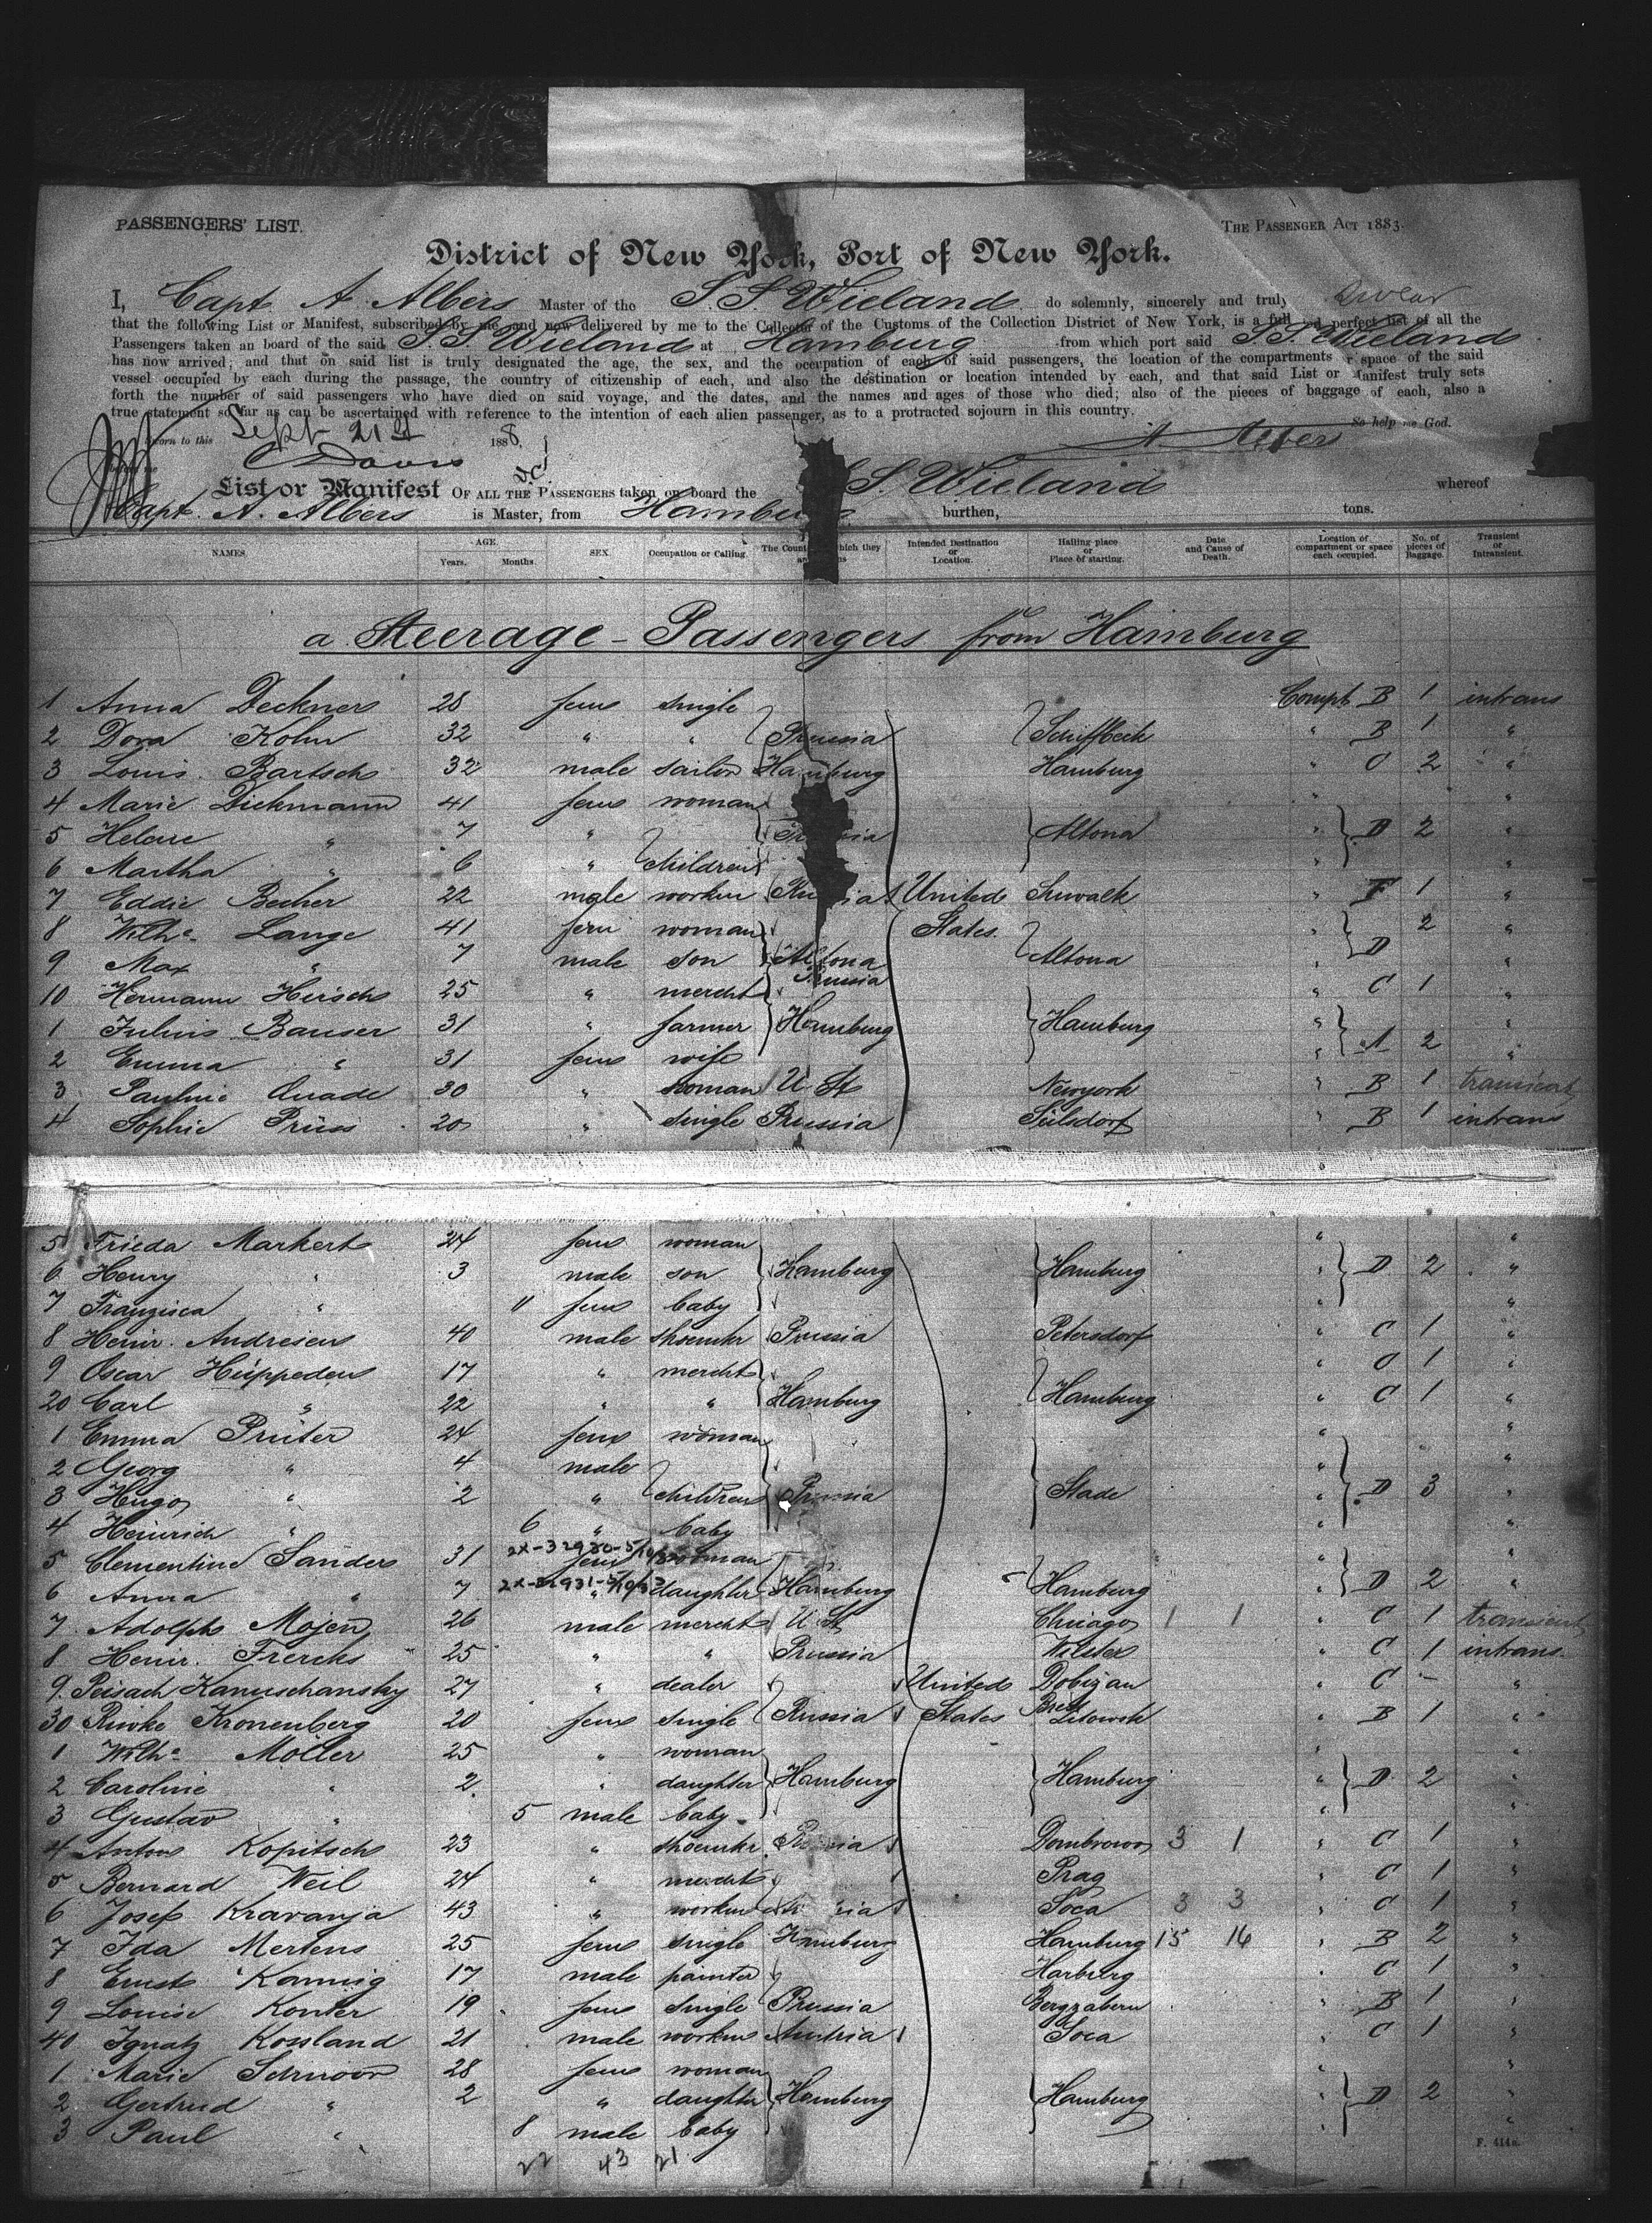 PASSENGERS' LIST.
THE PASSENGER ACT 1883.
District of New York, Port of New York.
I, Capt A. Albers Master of the S. S. Wieland do solemnly, sincerely and truly swear
that the following List or Manifest, subscribed by me and now delivered by me to the Collector of the Customs of the Collection District of New York, is a full and perfect list of all the
Passengers taken an board of the said S. S. Wieland at Hamburg from which port said S. S. Wieland
has now arrived; and that on said list is truly designated the age, the sex, and the occupation of each of said passengers, the location of the compartments or space of the said
vessel occupied by each during the passage, the country of citizenship of each, and also the destination or location intended by each, and that said List or Manifest truly sets
forth the number of said passengers who have died on said voyage, and the dates, and the names and ages of those who died; also of the pieces of baggage of each, also a
true statement so far as can be ascertained with reference to the intention of each alien passenger, as to a protracted sojourn in this country.
So help me God.
Sworn to this Sept 21st 1888. A Albers
List or Manifest OF ALL THE PASSENGERS taken on board the S. Wieland whereof
Capt. A. Albers is Master, from Hamburg burthen, tons.
NAMES. AGE. Years. Months. SEX. Occupation or Calling. The Country which they Intended Destination or Location. Hailing place or Place of starting. Date and Cause of Death. Location of compartment or space each occupied. No. of pieces of Baggage. Transient or Intransient.
a. Steerage-Passengers from Hamburg
1 Anna Deckner 28 fem single Compt. B 1 intrans
2 Dora Kohn 32 " " Prussia Schiffbeck " B 1 "
3 Louis Bartsch 32 male sailor Hamburg Hamburg " O 2 "
4 Marie Dickmann 41 fem woman " "
5 Helene " 7 " Prussia Altona " D 2 "
6 Martha " 6 " children " "
7 Eddie Becher 22 male worker Russia United Suwalk " F 1 "
8 Wilhe Lange 41 fem woman States. " 2 "
9 Max " 7 male son Altona Prussia Altona " D "
10 Hermann Hirsch 25 " mercht " C 1 "
1 Julius Bauser 31 " farmer Hamburg Hamburg " "
2 Emma " 31 fem wife " A 2 "
3 Pauline Quade 30 " woman U. St. Newyork " B 1 transient
4 Sophie Prüss 20 " single Prussia Sülsdorf " B 1 intrans
5 Frieda Markert 24 fem woman " "
6 Henry " 3 male son Hamburg Hamburg " D 2 "
7 Franzisca " 11 fem baby " "
8 Heinr. Andresen 40 male shoemkr Prussia Petersdorf " C 1 "
9 Oscar Hüppeden 17 " mercht " O 1 "
20 Carl " 22 " " Hamburg Hamburg " C 1 "
1 Emma Prüter 24 fem woman " "
2 Georg " 4 male " "
3 Hugo " 2 " children Prussia Stade " D 3 "
4 Heinrich " 6 " baby " "
5 Clementine Sanders 31 fem woman "
6 Anna " 7 " daughter Hamburg Hamburg " D 2 "
7 Adolph Mojen 26 male mercht U. St. Chicago 1 1 " C 1 transient
8 Heinr. Frercks 25 " " Prussia Wilster " C 1 intrans.
9 Peisach Kanuschansky 27 " dealer United Dobizau " C - "
30 Riwke Kronenberg 20 fem single Russia States Brest Litowsk " B 1 "
1 Wilhe Möller 25 " woman " "
2 Caroline " 2 " daughter Hamburg Hamburg " D 2 "
3 Gustav " 5 male baby " "
4 Anton Kopitsch 23 " shoemkr. Dombrowo 3 1 " C 1 "
5 Bernard Weil 24 " mercht Prag " C 1 "
6 Josef Kravanja 43 " worker Soca 3 3 " C 1 "
7 Ida Mertens 25 fem single Hamburg Hamburg 15 16 " B 2 "
8 Ernst Konnig 17 male painter Harburg " C 1 "
9 Louise Konter 19 fem single Prussia Bergzabern " B 1 "
40 Ignatz Kossland 21 male worker Austria Soca " C 1 "
1 Marie Schnoor 28 fem woman " "
2 Gertrud " 2 " daughter Hamburg Hamburg " D 2 "
3 Paul " 8 male baby " "
22 43 21
F. 414a.